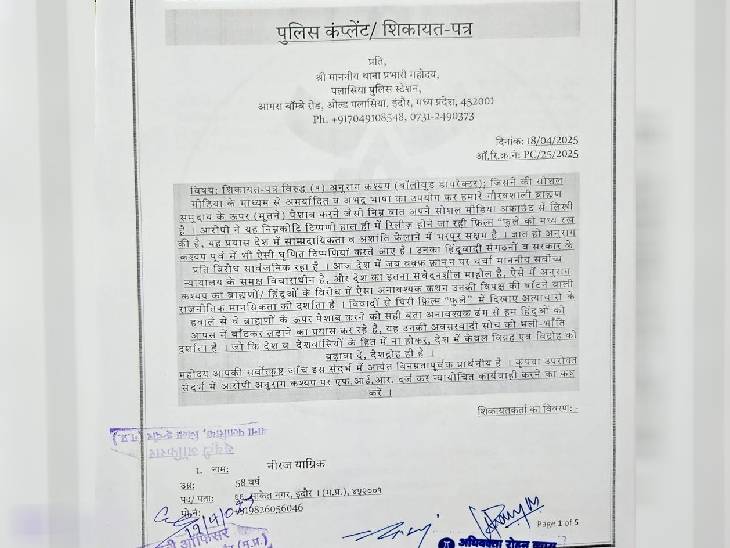 पुलिस कंप्लेंट/ शिकायत-पत्र
प्रति,
श्री माननीय थाना प्रभारी महोदय,
पलासिया पुलिस स्टेशन,
आगरा बॉम्बे रोड, ओल्ड पलासिया, इंदौर, मध्य प्रदेश, 452001
Ph. +917049108548, 0731-2490373
दिनांक: 18/04/2025
ऑ.रि.क्र.नं: PC/25/2025
विषय: शिकायत-पत्र विरुद्ध (१) अनुराग कश्यप (बॉलीवुड डायरेक्टर); जिसने की सोशल
मीडिया के माध्यम से अमर्यादित व अभद्र भाषा का उपयोग कर हमारे गौरवशाली ब्राह्मण
समुदाय के ऊपर (मूतने) पेशाब करने जैसी निम्न बात अपने सोशल मीडिया अकाउंट से लिखी
है । आरोपी ने यह निम्नकोटि टिप्पणी हाल ही में रिलीज़ होने जा रही फ़िल्म "फुले को मध्य रख
की है, यह प्रयास देश में साम्प्रदायिकता व अशांति फैलाने में भरपूर सक्षम है । ज्ञात हो अनुराग
कश्यप पूर्व में भी ऐसी घृणित टिप्पणियां करते आए है । उनका हिंदूवादी संगठनों व सरकार के
प्रति विरोध सार्वजनिक रहा है । आज देश में जब वक्फ कानून पर चर्चा माननीय सर्वोच्च
न्यायालय के समक्ष विचाराधीन है, और देश का इतना संवेदनशील माहौल है, ऐसे में अनुराग
कश्यप का ब्राह्मणों/ हिंदुओं के विरोध में ऐसा अनावश्यक कथन उनकी विपक्ष की बांटने वाली
राजनीतिक मानसिकता को दर्शाता है । विवादों से घिरी फ़िल्म "फुले" में दिखाए अत्याचारों के
हवाले से वे ब्राह्मणों के ऊपर पेशाब करने को सही बता अनावश्यक ढंग से हम हिंदुओं को
आपस में बाँटकर लड़ाने का प्रयास कर रहे है, यह उनकी अवसरवादी सोच को भली-भाँति
दर्शाता है । जो कि देश व देशवासियों के हित में ना होकर, देश में केवल विग्रह एवं विद्रोह को
बढ़ावा दे, देशद्रोह ही है ।
महोदय आपकी सर्वोत्कृष्ट जाँच इस संदर्भ में अत्यंत विनम्रतापूर्वक प्रार्थनीय है । कृपया उपरोक्त
संदर्भ में आरोपी अनुराग कश्यप पर एफ.आई.आर. दर्ज कर न्यायोचित कार्यवाही करने का कष्ट
करें ।
शिकायतकर्ता का विवरण:-
1. नाम: नीरज याग्निक
उम्र: 58 वर्ष
साकेत नगर, इंदौर । (म.प्र.), ४५२००१
9826056046
Page 1 of 5
अधिवक्ता रोहन